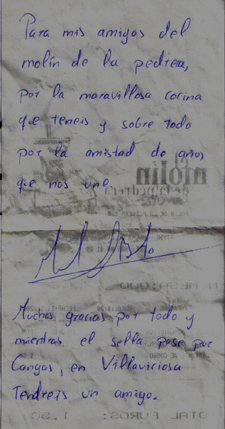 Para mis amigos del
molín de la pedrera,
por la maravillosa cocina
que teneis y sobre todo
por la amistad de años
que nos une.
Muchas gracias por todo y
mientras el sella pase por
Cangas, en Villaviciosa
Tendreis un amigo.